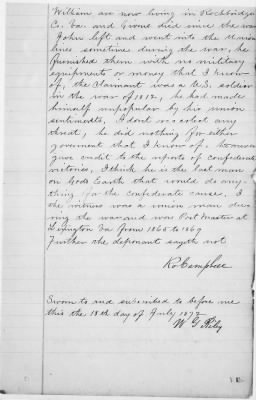 William are now living in Rockbridge
Co. Va. and Evans died since the war
John left and went into the Union
lines sometime during the war, he
furnished them with no military
equipments or money that I know
of, the Claimant was a U.S. soldier
in the war of 1812, he had made
himself unpopular by his union
sentiments, I dont recolect any
threat, he did nothing for either
government that I know of. however
give credit to the reports of confederate
victories, I think he is the last man
on Gods Earth that would do any-
thing for the confederate cause, I
the witness was a union man du-
ring the war and was Post Master at
Lexington Va from 1865 to 1869
Further the deponant sayeth not
Ro Campbell
Sworn to and subscribed to before me
this the 18th day of July 1872
W G